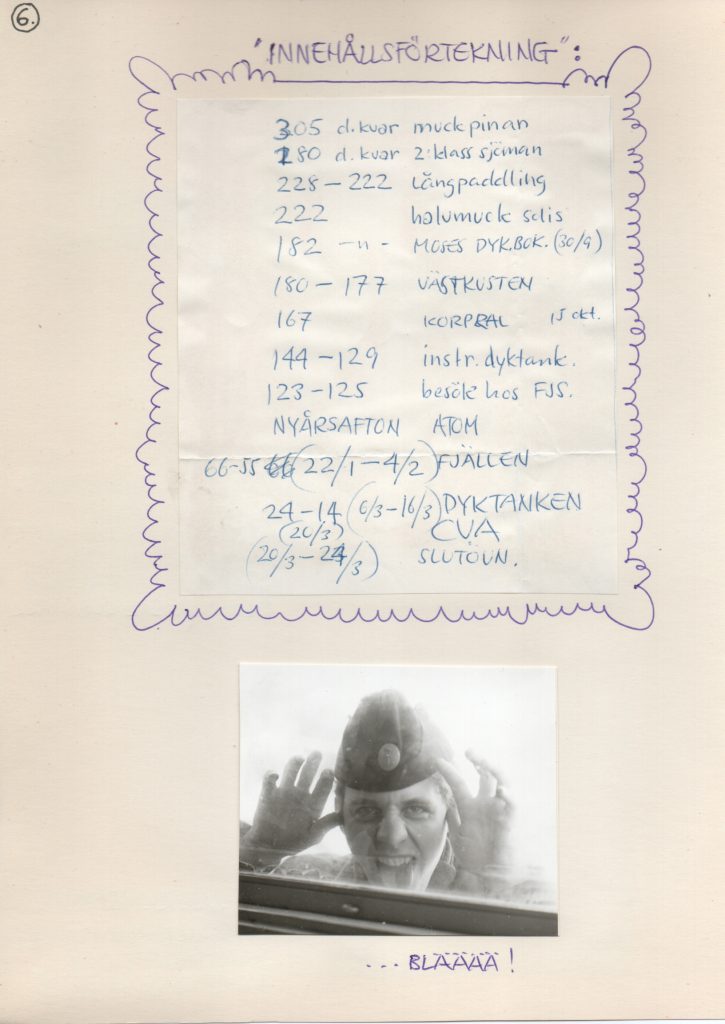 6.
"INNEHÅLLSFÖRTEKNING":
305 d.kvar muckpinan
180 d.kvar 2:klass sjöman
228 – 222 Långpaddling
222 halvmuck
182 –"– MOSES DYK.BOK. (30/9)
180 – 177 VÄSTKUSTEN
167 KORPRAL 15 okt.
144 – 129 instr. dyktank.
123 – 125 besök hos FJS.
NYÅRSAFTON ATOM
66-55 (22/1 – 4/2) FJÄLLEN
24 – 14 (6/3 – 16/3) DYKTANKEN
(20/3) CVA
(20/3 – 24/3) SLUTÖVN.
... BLÄÄÄÄ!